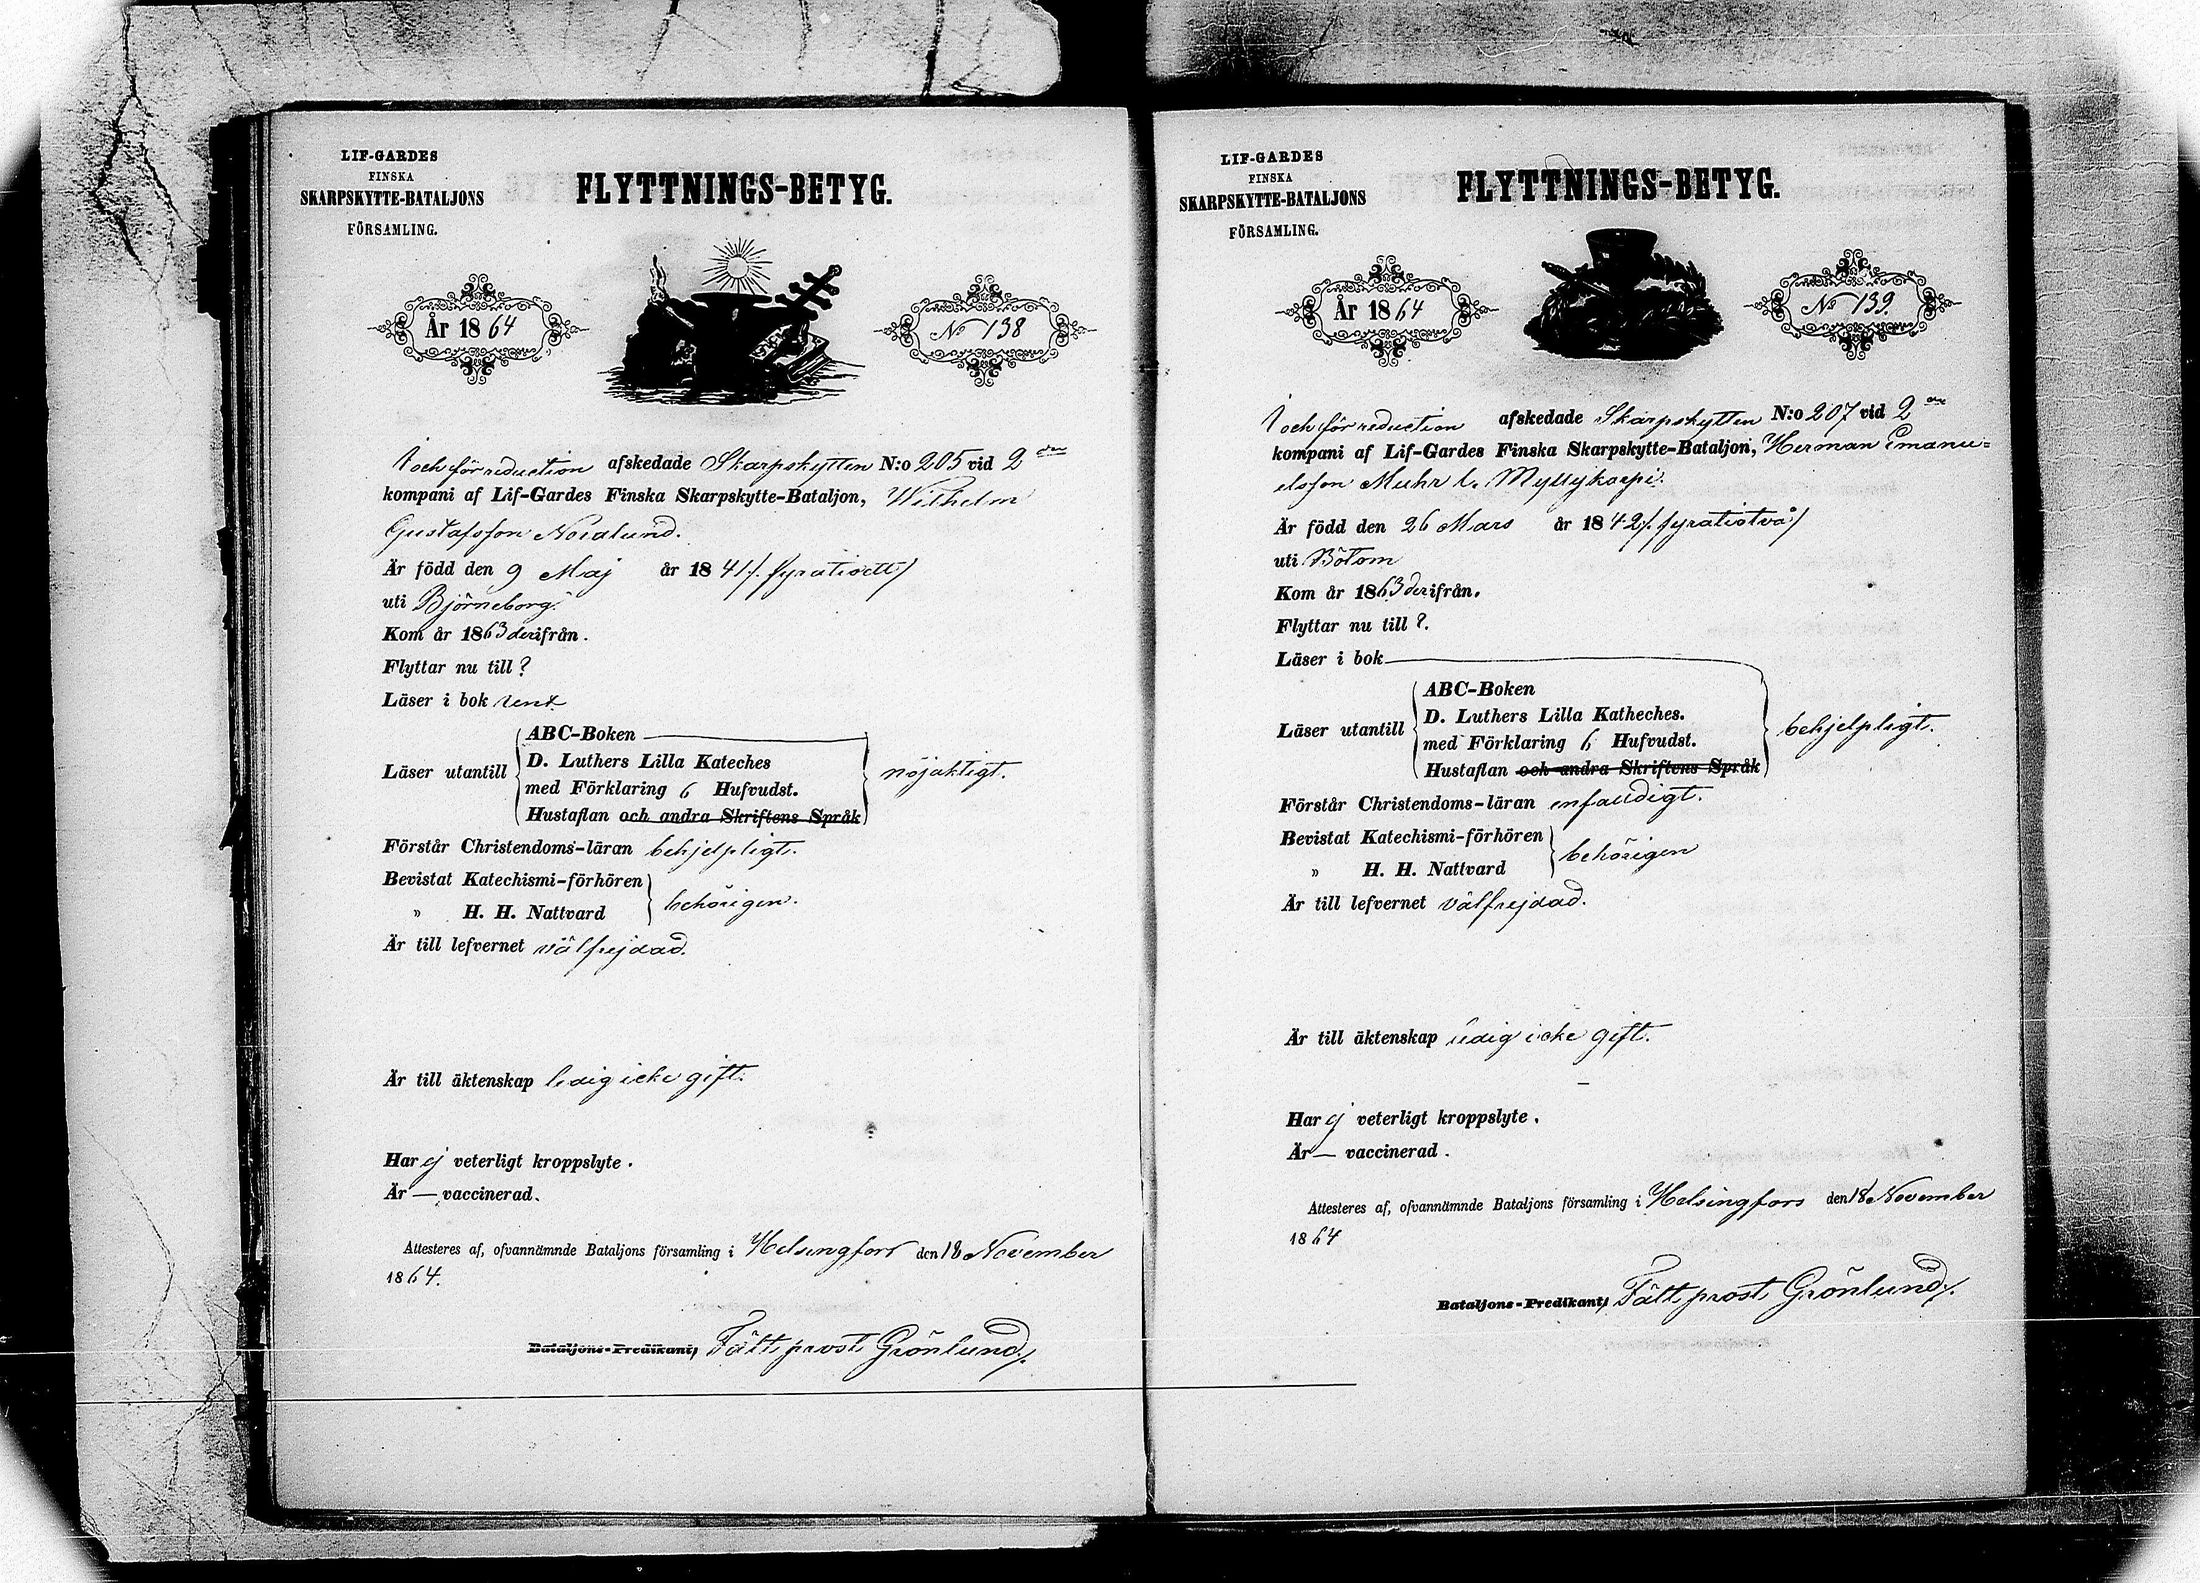 LIF-GARDES
FINSKA
SKARPSKYTTE-BATALJONS
FÖRSAMLING.
FLYTTNINGS-BETYG.
År 1864
No 138
I och för reduction afskedade Skarpskytten N:o 205 vid 2 dra
kompani af Lif-Gardes Finska Skarpskytte-Bataljon, Wilhelm
Gustafsson Nordlund.
Är född den 9 Maj år 1841/. fyratioett/
uti Björneborg.
Kom år 1863 derifrån.
Flyttar nu till ?
Läser i bok rent
Läser utantill
ABC-Boken
D. Luthers Lilla Kateches
med Förklaring 6 Hufvudst.
Hustaflan och andra Skriftens Språk
nöjaktigt.
Förstår Christendoms-läran behjelpligt.
Bevistat Katechismi-förhören
" H. H. Nattvard
behörigen.
Är till lefvernet välfrejdad.
Är till äktenskap ledig icke gift.
Har ej veterligt kroppslyte.
Är — vaccinerad.
Attesteres af, ofvannämnde Bataljons församling i Helsingfors den 18 November
1864.
Bataljons-Predikant, Fältprost Grönlund/.
LIF-GARDES
FINSKA
SKARPSKYTTE-BATALJONS
FÖRSAMLING.
FLYTTNINGS-BETYG.
År 1864
No 139.
I och för reduction afskedade Skarpskytten N:o 207 vid 2
kompani af Lif-Gardes Finska Skarpskytte-Bataljon, Herman Emanu=
elsson Muhr l. Myllykarpi.
Är född den 26 Mars år 1842/. fyratiotvå/
uti Bötom
Kom år 1863 derifrån.
Flyttar nu till ?.
Läser i bok
Läser utantill
ABC-Boken
D. Luthers Lilla Katheches.
med Förklaring 6 Hufvudst.
Hustaflan och andra Skriftens Språk
behjelpligt.
Förstår Christendoms-läran enfaldigt.
Bevistat Katechismi-förhören
" H. H. Nattvard
behörigen
Är till lefvernet välfrejdad.
Är till äktenskap ledig icke gift.
Har ej veterligt kroppslyte.
Är — vaccinerad.
Attesteres af, ofvannämnde Bataljons församling i Helsingfors den 18 November
1864
Bataljons-Predikant, Fältprost Grönlund/.